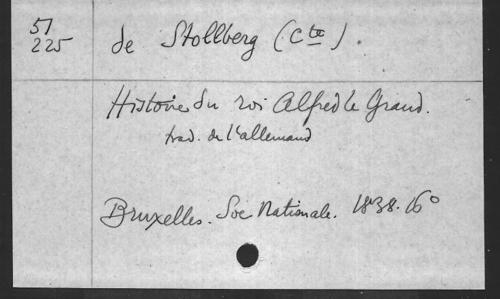 51
225
de Stollberg (Cte).
Histoire du roi Alfred le Grand.
trad. de l'allemand
Bruxelles. Soc Nationale. 1838. 16°